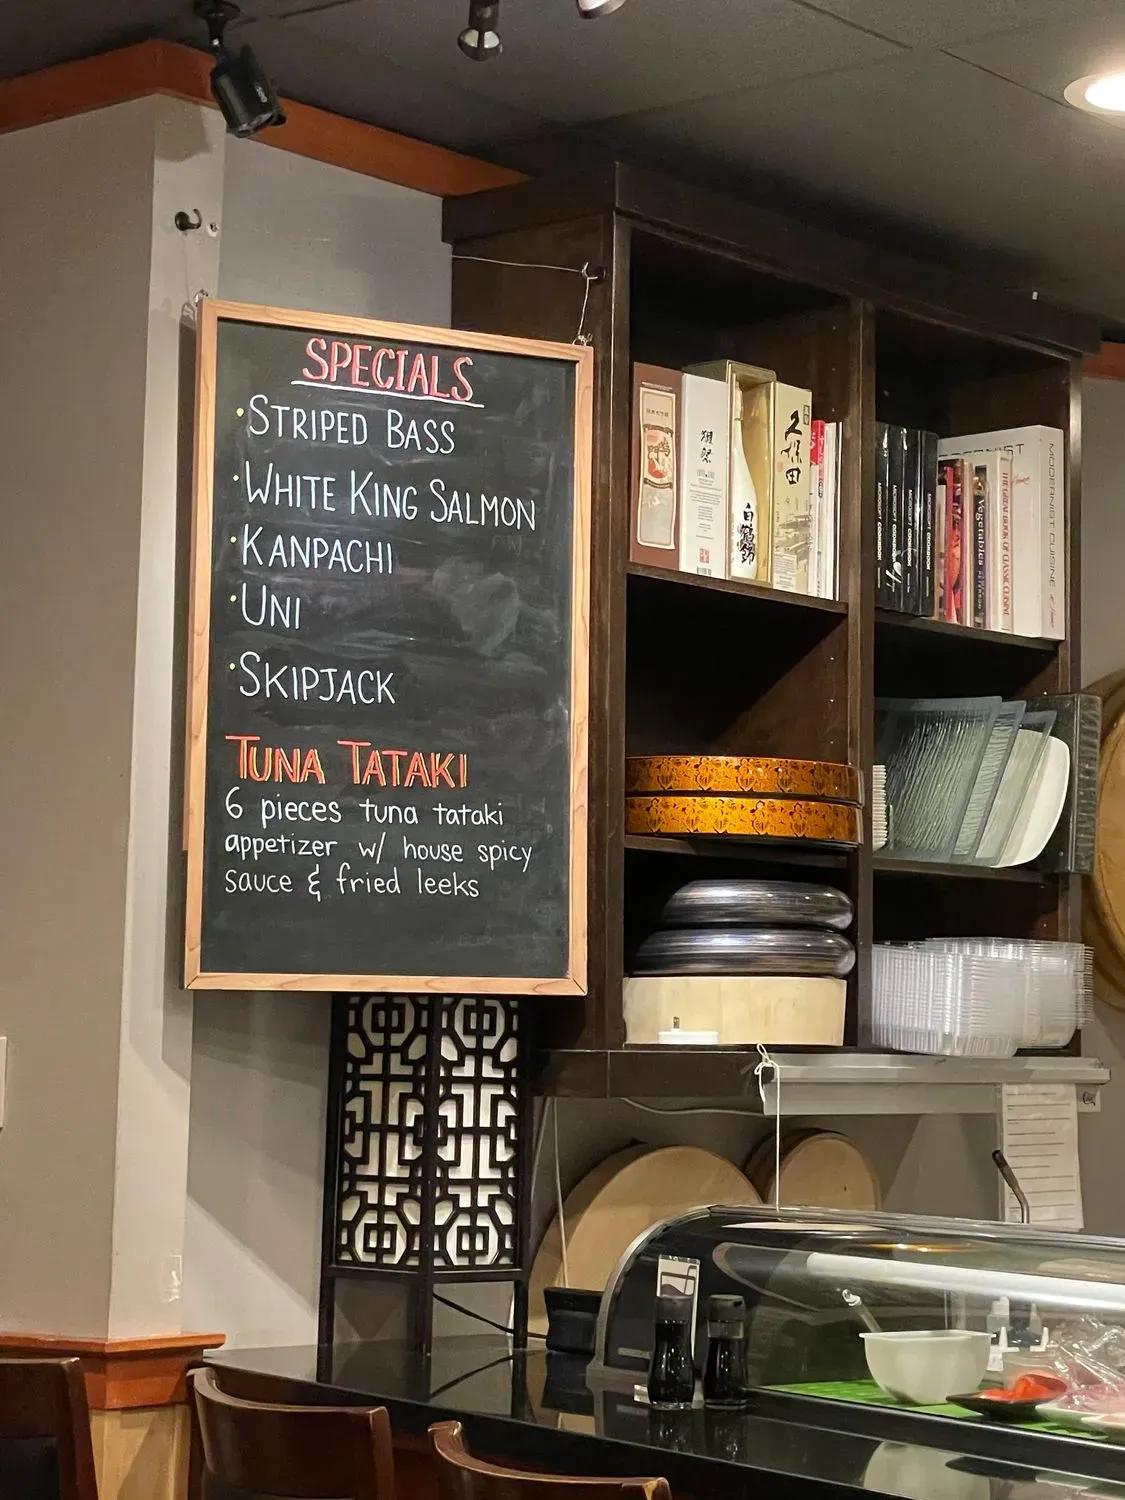 SPECIALS
· STRIPED BASS
· WHITE KING SALMON
· KANPACHI
· UNI
· SKIPJACK
TUNA TATAKI
6 pieces tuna tataki
appetizer w/ house spicy
sauce & fried leeks
獺祭
白鶴錦
久保田
MICROSOFT COOKBOOK
MICROSOFT COOKBOOK
Vegetables
THE GREAT BOOK OF CLASSIC CUISINE
MODERNIST CUISINE